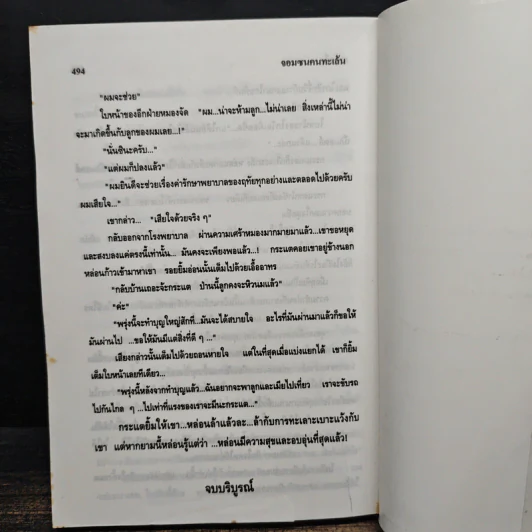 494
จอมซนคนทะเล้น
"ผมจะช่วย"
ใบหน้าของอีกฝ่ายหมองจัด "ผม...น่าจะห้ามลูก...ไม่น่าเลย สิ่งเหล่านี้ไม่น่า
จะมาเกิดขึ้นกับลูกของผมเลย...!"
"นั่นซินะครับ..."
"แต่ผมก็ปลงแล้ว"
"ผมยินดีจะช่วยเรื่องค่ารักษาพยาบาลของฤทัยทุกอย่างและตลอดไปด้วยครับ
ผมเสียใจ..."
เขากล่าว... "เสียใจด้วยจริง ๆ"
กลับออกจากโรงพยาบาล ผ่านความเศร้าหมองมากมายมาแล้ว...เขาขอหยุด
และสงบลงแค่ตรงนี้เท่านั้น... มันคงจะเพียงพอแล้ว...! กระแตคอยเขาอยู่ข้างนอก
หล่อนก้าวเข้ามาหาเขา รอยยิ้มอ่อนนั้นเต็มไปด้วยเอื้ออาทร
"กลับบ้านเถอะจ้ะกระแต ป่านนี้ลูกคงจะหิวนมแล้ว"
"ค่ะ"
"พรุ่งนี้จะทำบุญใหญ่สักที่...มันจะได้สบายใจ อะไรที่มันผ่านมาแล้วก็ขอให้
มันผ่านไป ...ขอให้มันมีแต่สิ่งที่ดี ๆ ..."
เสียงกล่าวนั้นเต็มไปด้วยถอนหายใจ แต่ในที่สุดเมื่อแบ่งแยกได้ เขาก็ยิ้ม
เต็มใบหน้าเลยทีเดียว...
"พรุ่งนี้หลังจากทำบุญแล้ว...ฉันอยากจะพาลูกและเมียไปเที่ยว เราจะขับรถ
ไปกันไกล ๆ ...ไปเท่าที่แรงของเราจะมีนะกระแต..."
กระแตยิ้มให้เขา...หล่อนล้าแล้วละ...ล้ากับการทะเลาะเบาะแว้งกับ
เขา แต่หากยามนี้หล่อนรู้แต่ว่า ...หล่อนมีความสุขและอบอุ่นที่สุดแล้ว!
จบบริบูรณ์